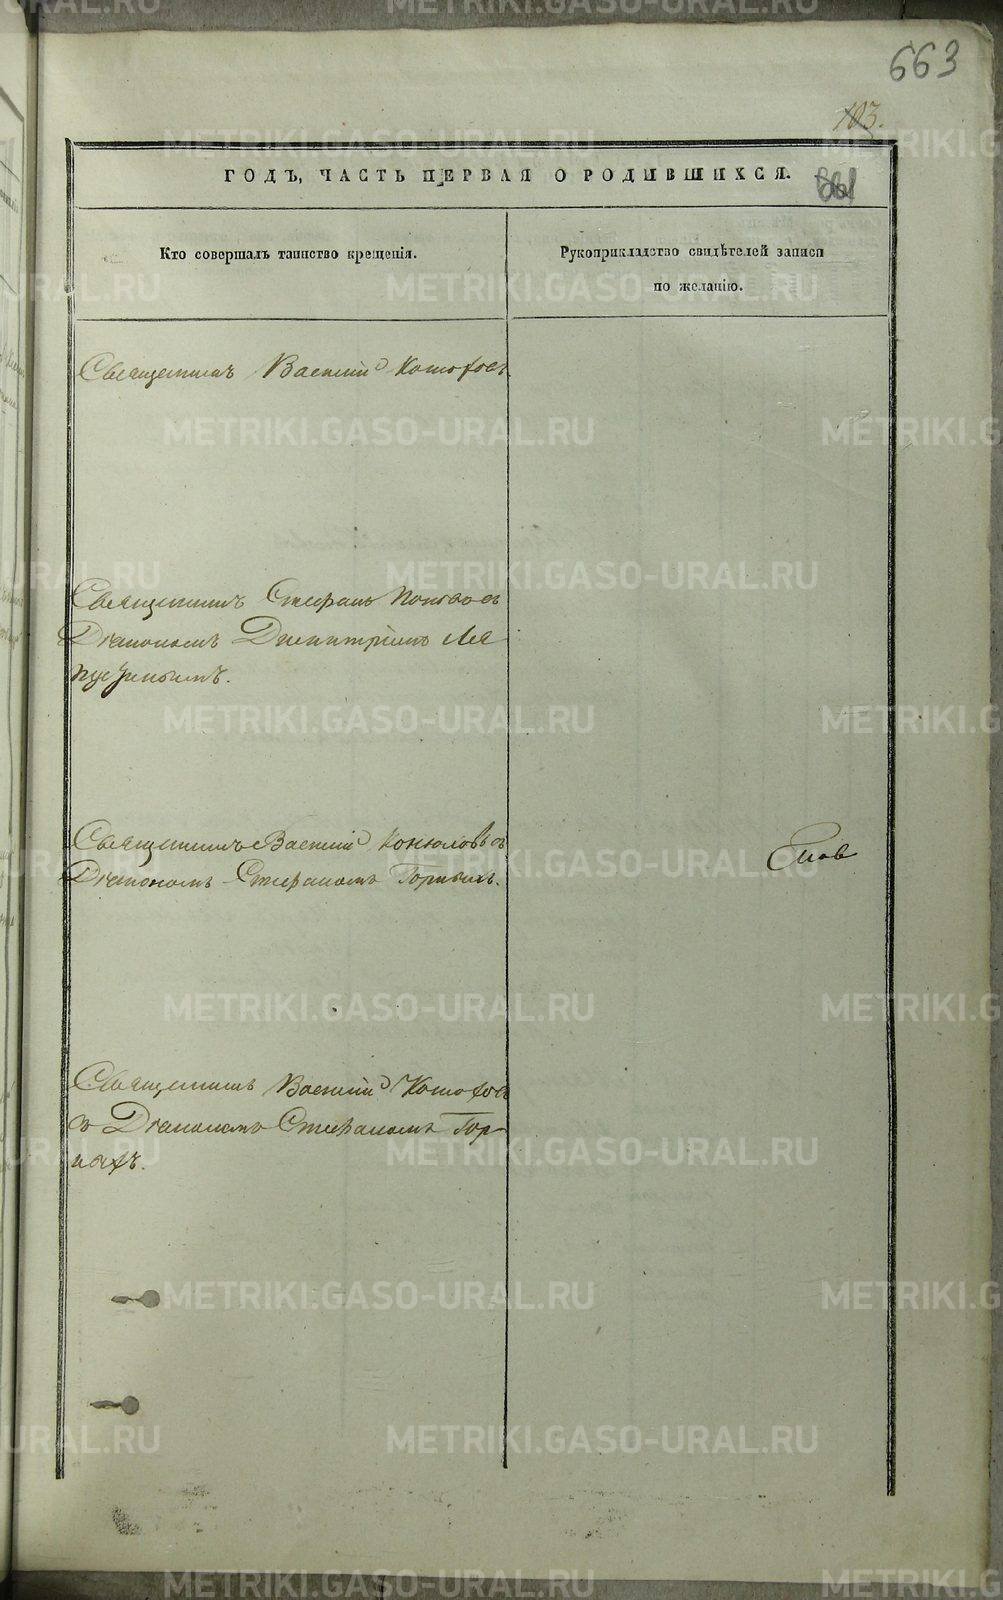 663
103.
661
ГОДЪ, ЧАСТЬ ПЕРВАЯ О РОДИВШИХСЯ.
Кто совершалъ таинство крещенія.
Рукоприкладство свидѣтелей записи
по желанію.
Священникъ Василій
Священникъ Стефанъ Поповъ съ
Діакономъ Димитріемъ Ля
пустинымъ.
Священникъ Василій съ
Діакономъ Стефаномъ Горныхъ.
Священникъ Василій
съ Діакономъ Стефаномъ Гор-
ныхъ.
METRIKI.GASO-URAL.RU